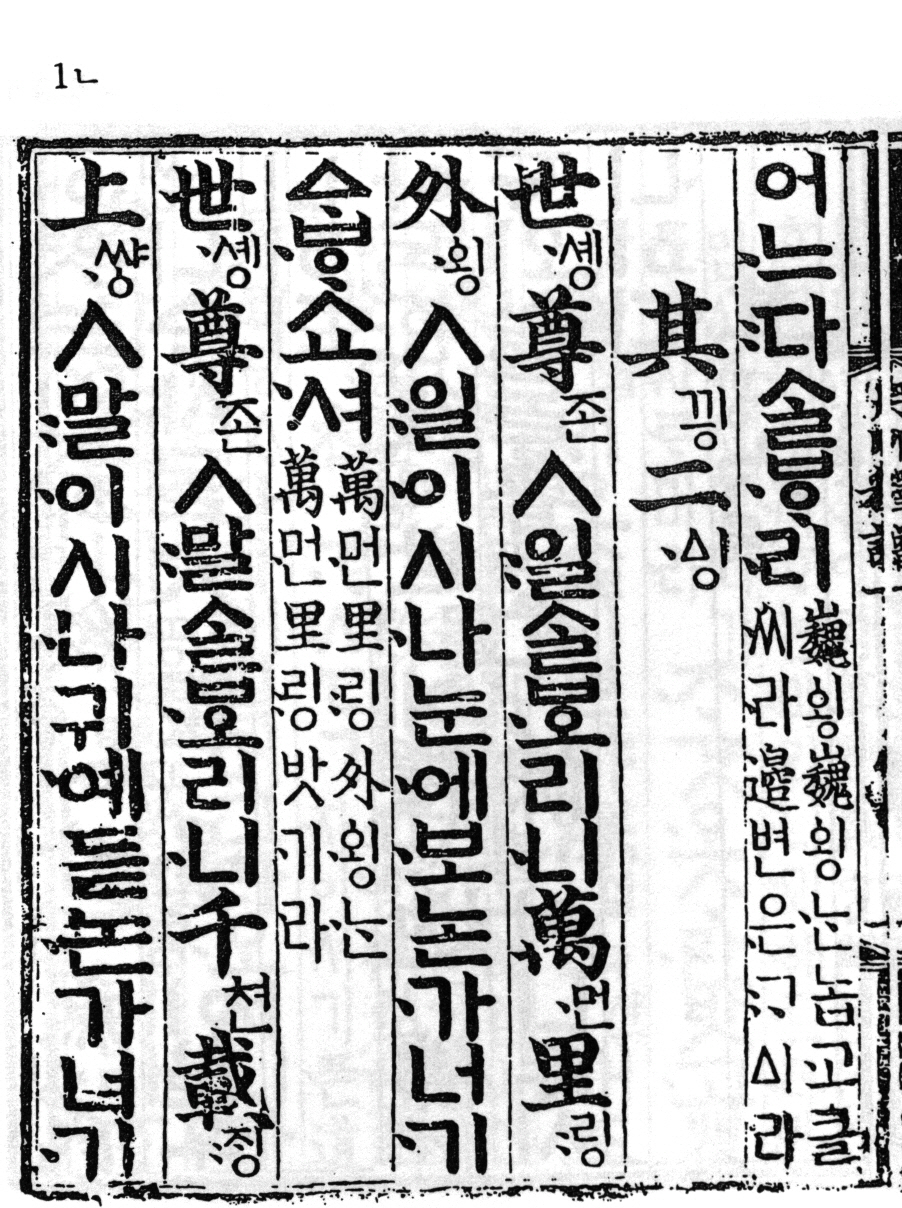 1ㄴ
어느다ᄉᆞᆯᄫᆞ리
巍ᅌᅬᆼ巍ᅌᅬᆼᄂᆞᆫ놉고클
씨라邊변은ᄀᆞᅀᅵ라
其끵二ᅀᅵᆼ
世솅尊존ㅅ일ᄉᆞᆯᄫᅩ리니萬먼里링
外ᅌᅬᆼㅅ일이시나눈에보논가너기
ᅀᆞᄫᆞ쇼셔
萬먼里링外ᅌᅬᆼᄂᆞᆫ
萬먼里링밧기라
世솅尊존ㅅ말ᄉᆞᆯᄫᅩ리니千쳔載ᄌᆡᆼ
上썅ㅅ말이시나귀예듣논가너기